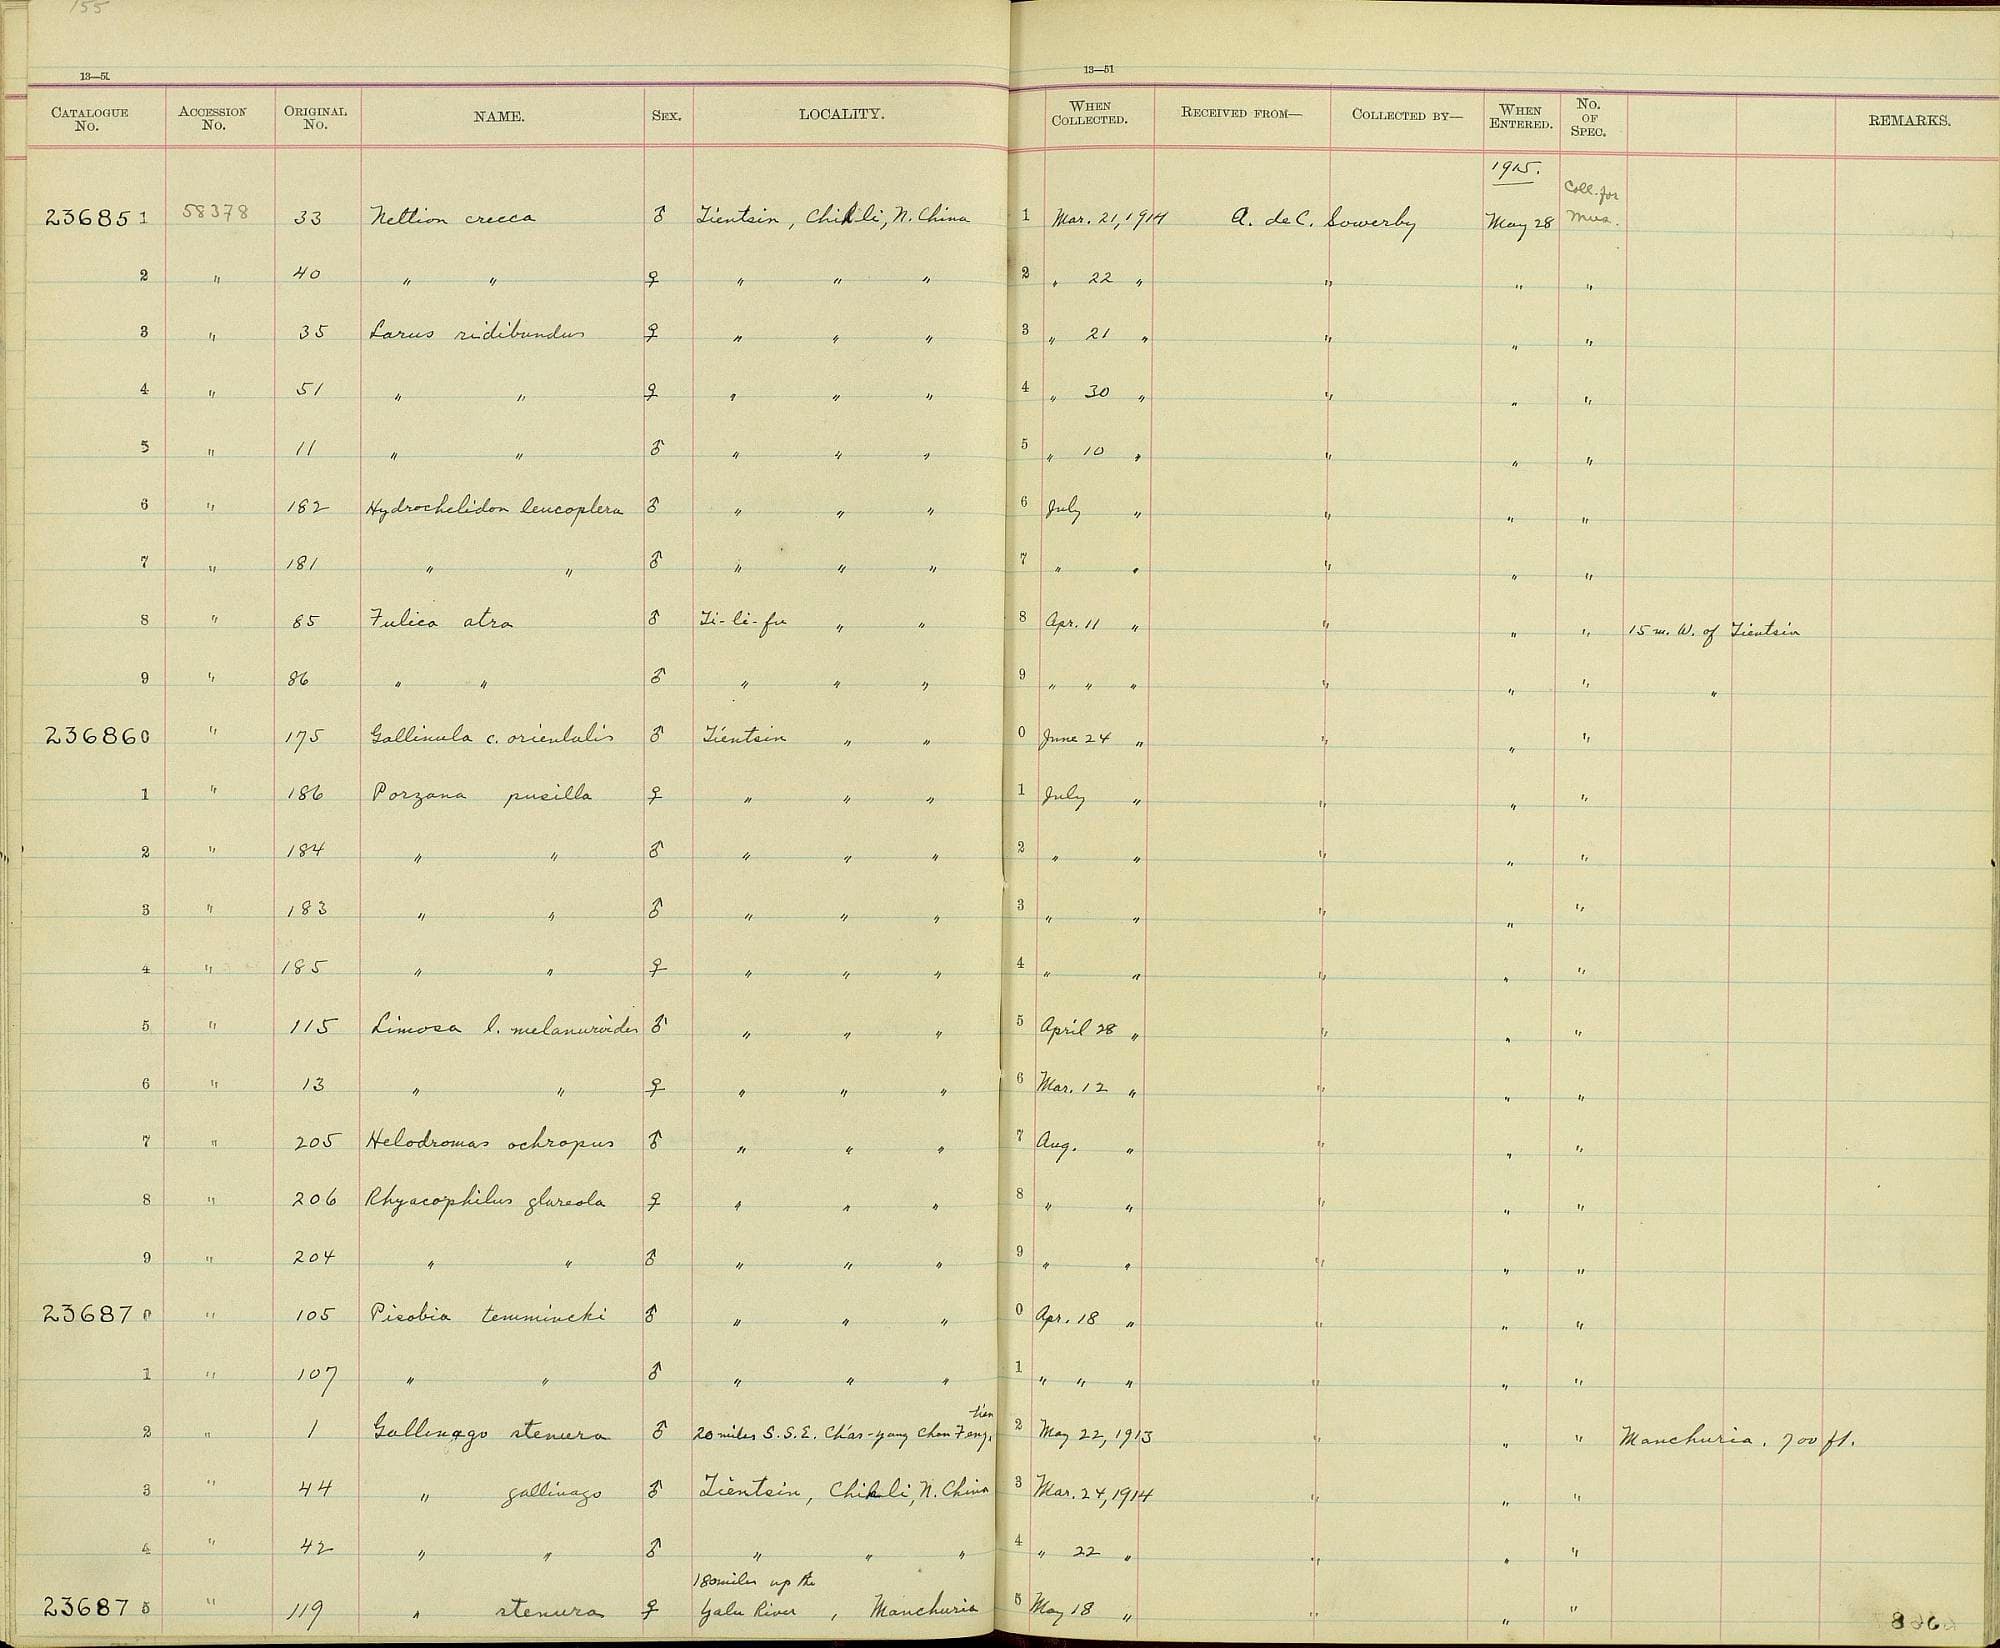 155
13—51 13—51
CATALOGUE No. ACCESSION No. ORIGINAL No. NAME. SEX. LOCALITY. WHEN COLLECTED. RECEIVED FROM— COLLECTED BY— WHEN ENTERED. No. OF SPEC. REMARKS.
1915.
236851 58378 33 Nettion crecca ♂ Tientsin, Chihli, N. China 1 Mar. 21, 1914 A. de C. Sowerby May 28 Coll. for Mus.
2 " 40 " " ♀ " " " 2 " 22 " " " "
3 " 35 Larus ridibundus ♀ " " " 3 " 21 " " " "
4 " 51 " " ♀ " " " 4 " 30 " " " "
5 " 11 " " ♂ " " " 5 " 10 " " " "
6 " 182 Hydrochelidon leucoptera ♂ " " " 6 July " " " "
7 " 181 " " ♂ " " " 7 " " " " "
8 " 85 Fulica atra ♂ Ti-li-fu " " 8 Apr. 11 " " " " 15 m. W. of Tientsin
9 " 86 " " ♂ " " " 9 " " " " " " "
236860 " 175 Gallinula c. orientalis ♂ Tientsin " " 0 June 24 " " " "
1 " 186 Porzana pusilla ♀ " " " 1 July " " " "
2 " 184 " " ♂ " " " 2 " " " " "
3 " 183 " " ♂ " " " 3 " " " " "
4 " 185 " " ♀ " " " 4 " " " " "
5 " 115 Limosa l. melanuroides ♂ " " " 5 April 28 " " " "
6 " 13 " " ♀ " " " 6 Mar. 12 " " " "
7 " 205 Helodromas ochropus ♂ " " " 7 Aug. " " " "
8 " 206 Rhyacophilus glareola ♀ " " " 8 " " " " "
9 " 204 " " ♂ " " " 9 " " " " "
236870 " 105 Pisobia temmincki ♂ " " " 0 Apr. 18 " " " "
1 " 107 " " ♂ " " " 1 " " " " " "
tien
2 " 1 Gallinago stenura ♂ 20 miles S.S.E. Cha's-yang Chon Feng, 2 May 22, 1913 " " " Manchuria. 700 ft.
3 " 44 " gallinago ♂ Tientsin, Chihli, N. China 3 Mar. 24, 1914 " " "
4 " 42 " " ♂ " " " 4 " 22 " " " "
180 miles up the
236875 " 119 " stenura ♀ Yalu River, Manchuria 5 May 18 " " " "